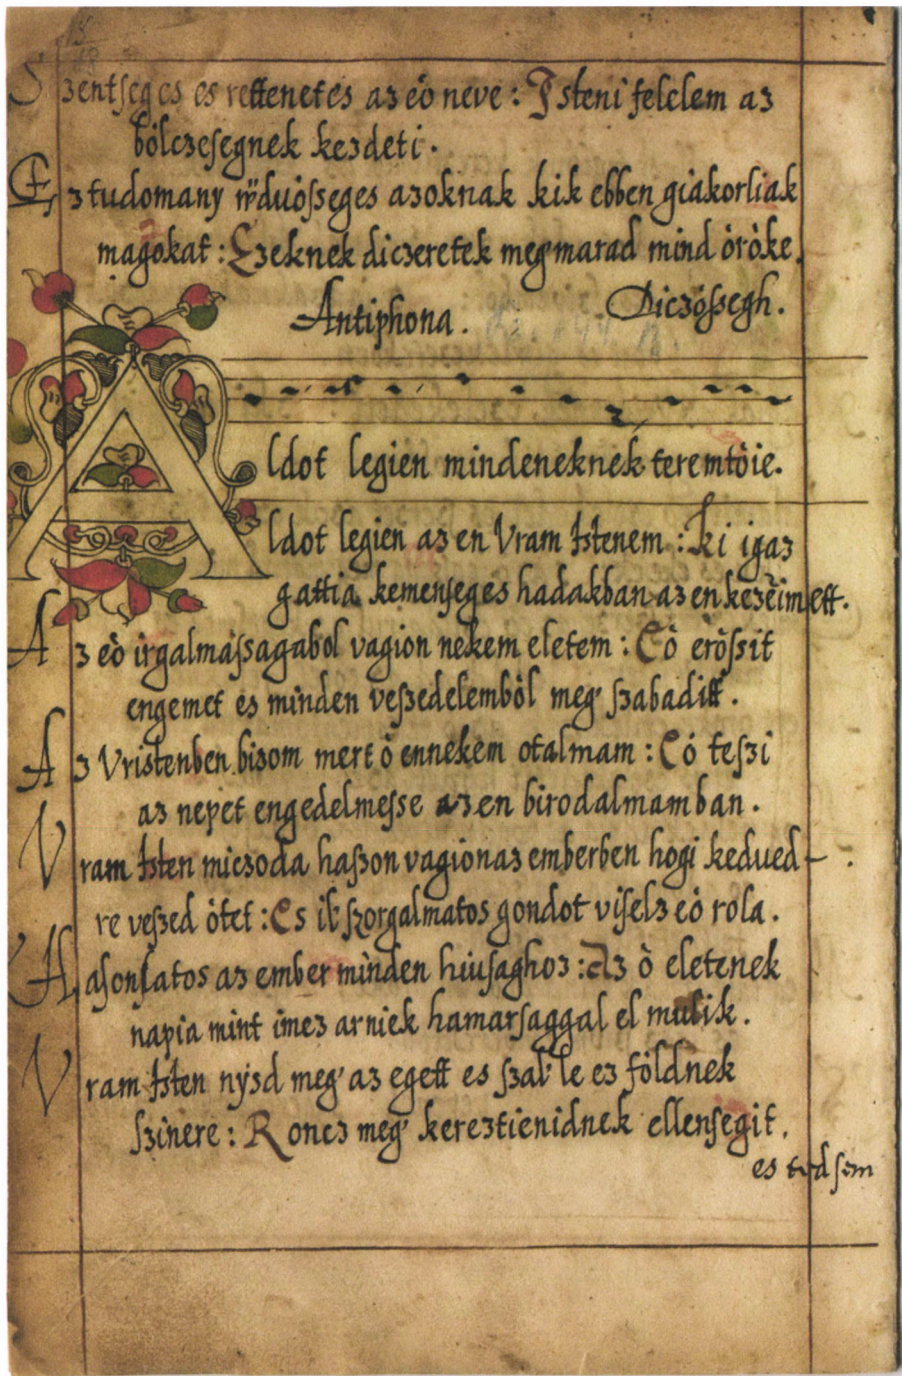 Szentseges es rettenetes az eö neve : Isteni felelem az
bölczesegnek kezdeti .
Ez tudomany üduösseges azoknak kik ebben giakorliak
magokat : Ezeknek diczeretek megmarad mind öröke.
Antiphona . Diczösseegh .
Aldot legien mindeneknek teremtöie .
Aldot legien az en Vram Istenem : Ki igaz
gattia kemenseges hadakban az en kezeimett .
Az eö irgalmassagabol vagion nekem eletem : Eö erössit
engemet es minden veszedelemböl meg szabaditt .
Az Vristenben bizom mert ö ennekem otalmam : Eö teszi
az nepet engedelmesse az en birodalmamban .
Vram Isten miczoda haszon vagion az emberben hogi kedued
re veszed ötet : Es ili szorgalmatos gondot viselz eö rola .
Hasonlatos az ember minden hiusaghoz : Az ö eletenek
napia mint imez arniek hamarsaggal el mulik .
Vram Isten nyzd meg az egett es szal le ez földnek
szinere : Roncz meg kereztienidnek ellensegit .
es